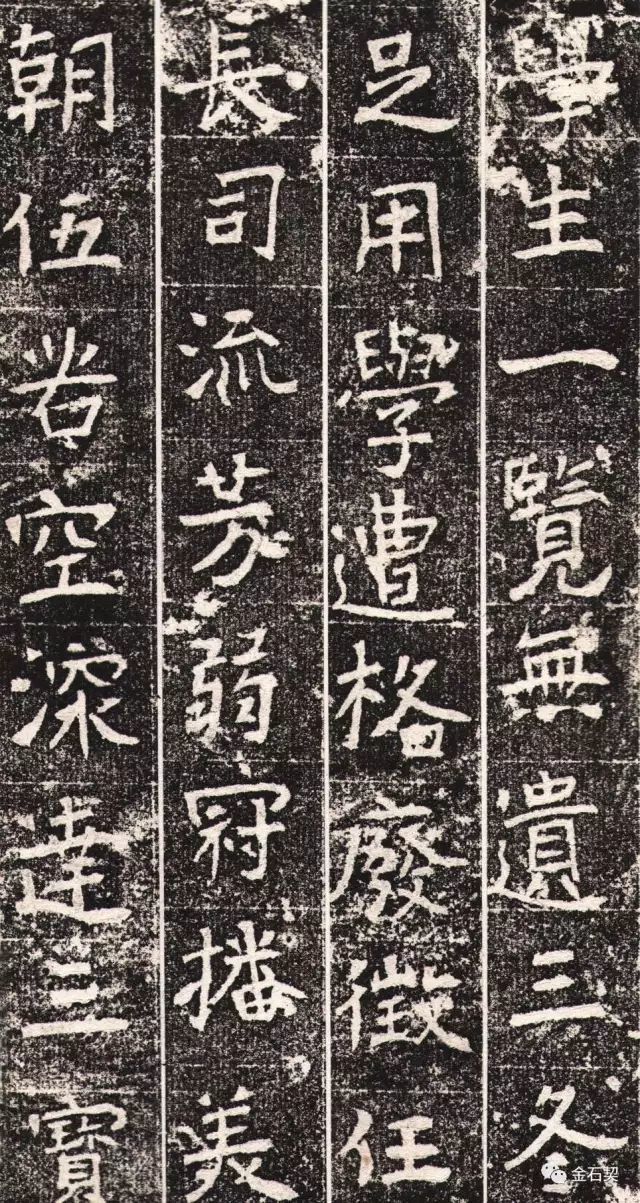 學生一覽無遺三冬
足用學遭格廢徵任
長司流芳弱冠播美
朝伍苦空深達三寶
金石契